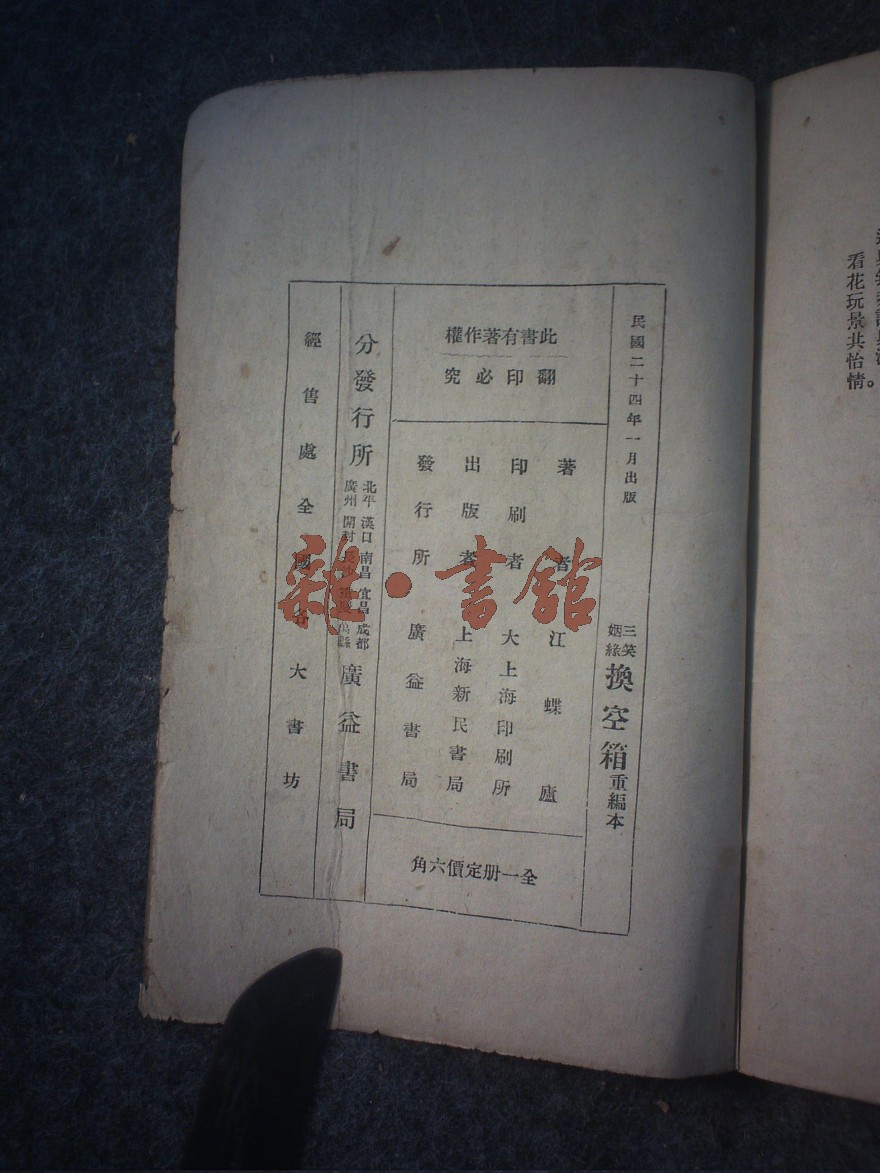 看花玩景共怡情。
民國二十四年一月出版
三笑姻緣 換空箱 重編本
此書有著作權
翻印必究
著者 江蝶廬
印刷者 大上海印刷所
出版者 上海新民書局
發行所 廣益書局
全一册定價六角
分發行所
北平 漢口 南昌 宜昌 成都
廣州 開封 長沙
廣益書局
經售處全國各大書坊
雜·書館